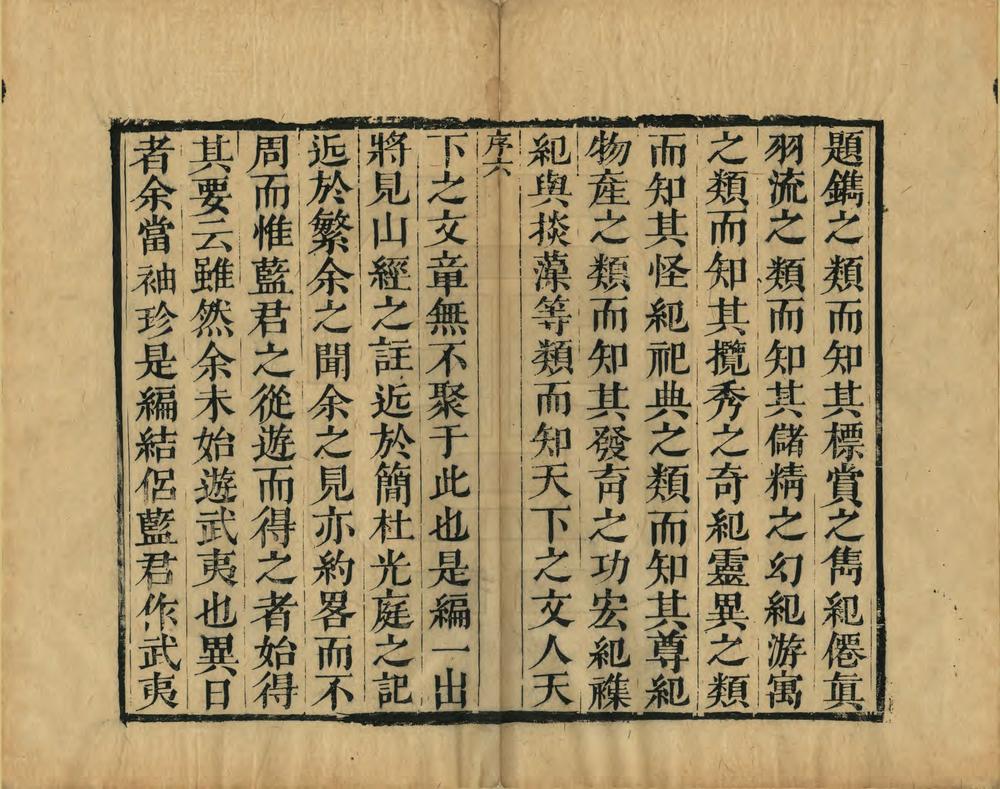 題鐫之類而知其標賞之雋紀僊眞
羽流之類而知其儲精之幻紀游寓
之類而知其攬秀之奇紀靈異之類
而知其怪紀祀典之類而知其尊紀
物產之類而知其發育之功宏紀襍
紀與掞藻等類而知天下之文人天
序六
下之文章無不聚于此也是編一出
將見山經之註近於簡杜光庭之記
近於繁余之聞余之見亦約畧而不
周而惟藍君之從遊而得之者始得
其要云雖然余未始遊武夷也異日
者余當袖珍是編結侶藍君作武夷